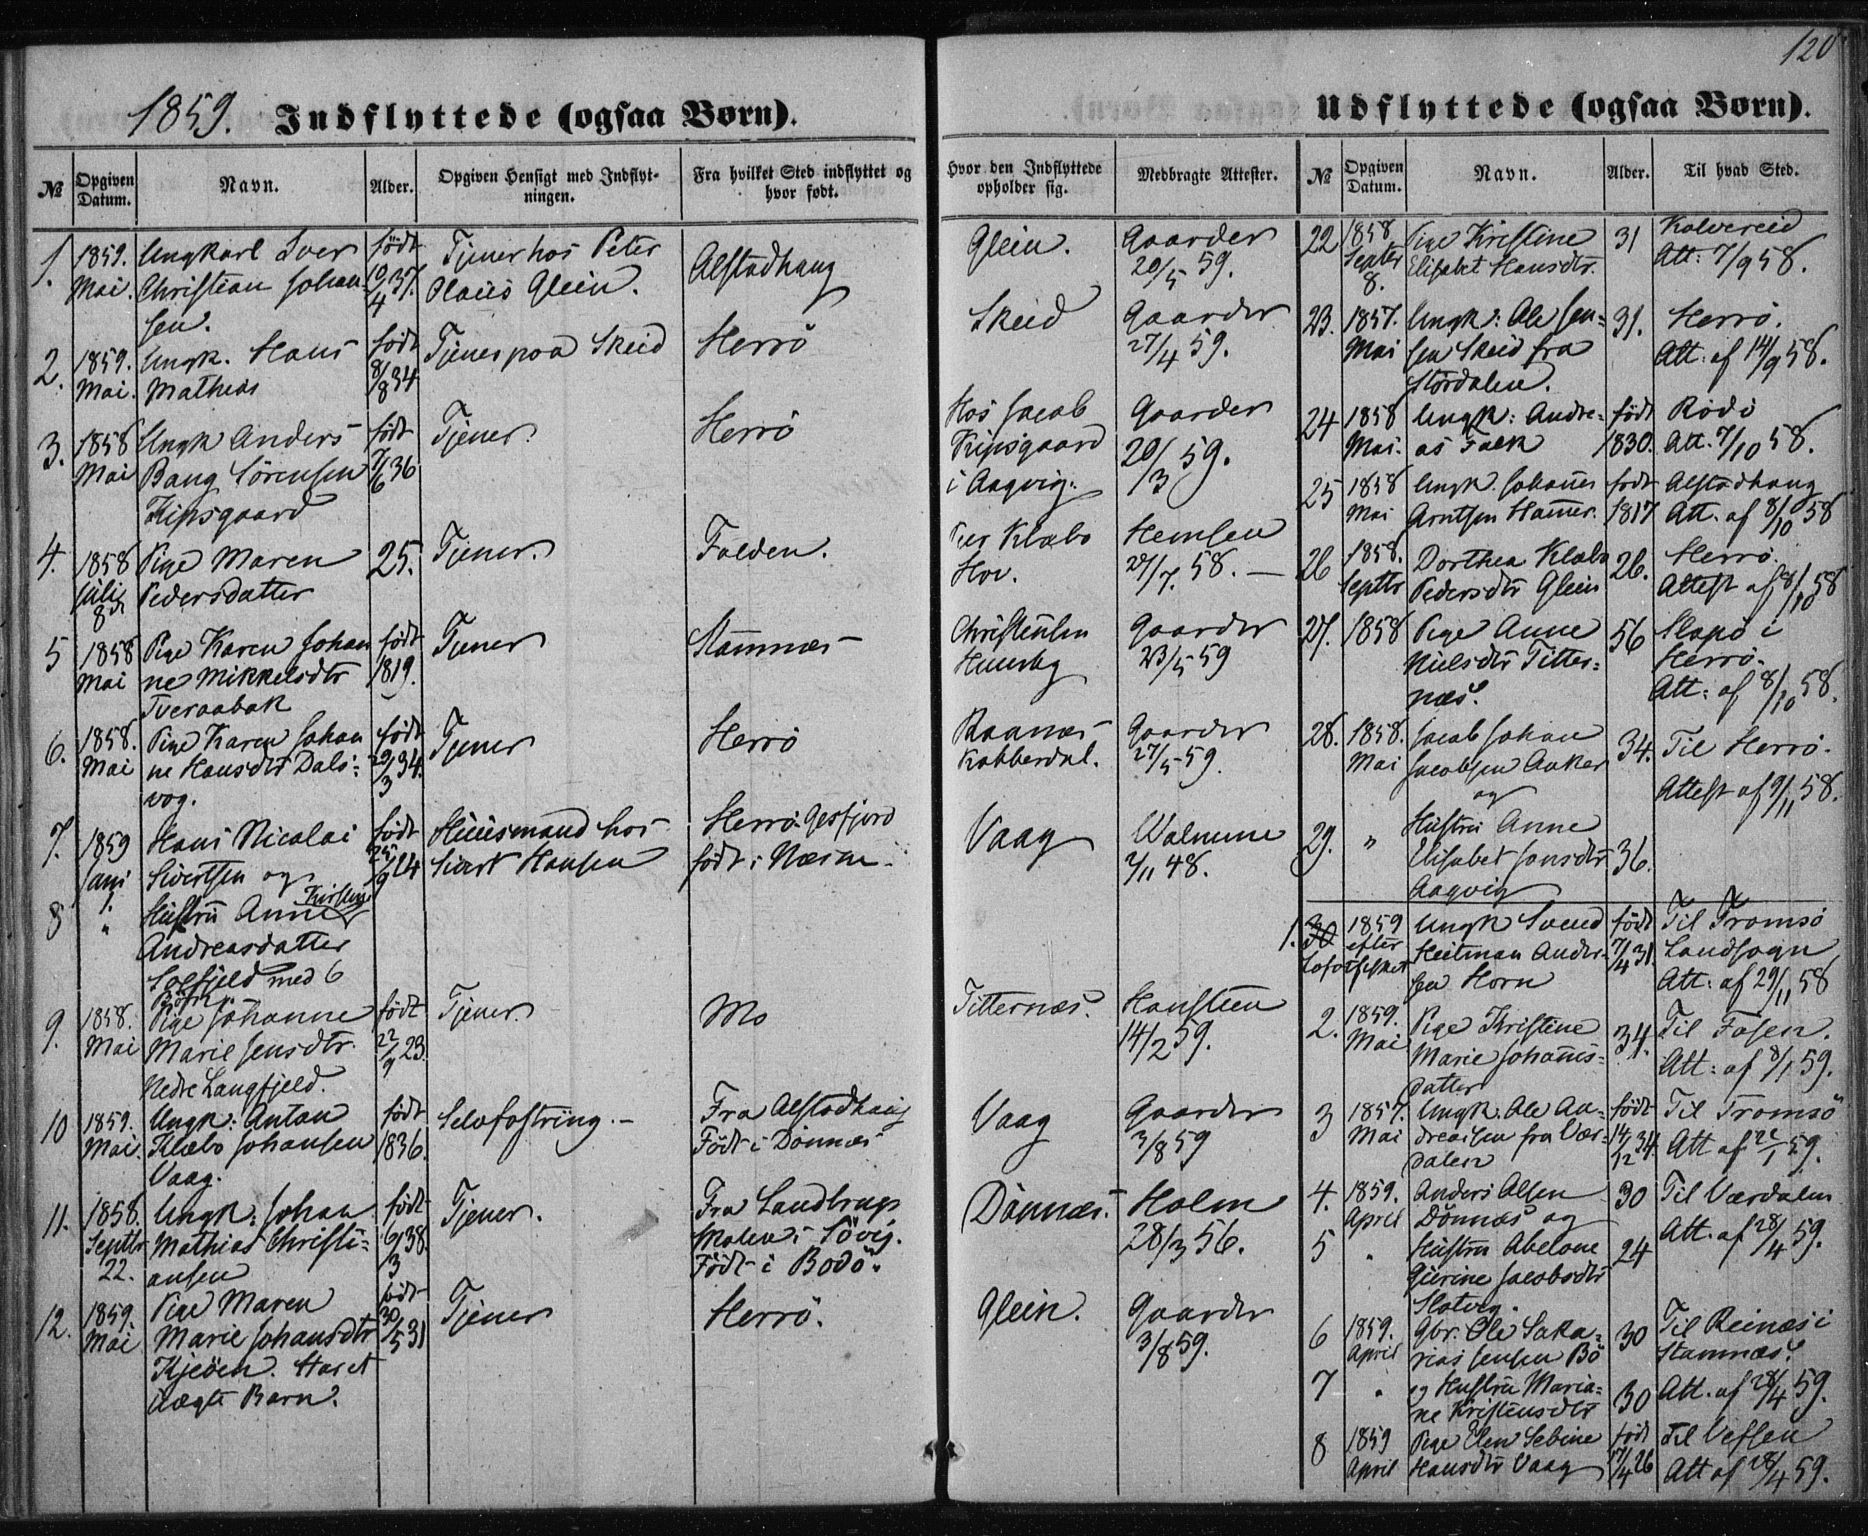 120
1859. Indflyttede (ogsaa Børn).
№ Opgiven Datum. Navn. Alder. Opgiven Hensigt med Indflytningen. Fra hvilket Sted indflyttet og hvor født.
1. 1859. Ungkarl Iver født Tjener hos Peter Alstadhaug
Mai. Christian Johan- 10/4 37. Olaus Glein.
sen.
2. 1859. Ungk. Hans født Tjener paa Skeid Herrö
Mai. Mathias 8/8 34
3. 1858 Ungk Anders født Tjener. Herrö
Mai Bang Sörensen 7/6 36
Kipsgaard
4. 1858 Pige Maren 25. Tjener. Folden.
Juli Pedersdatter
8de
5 1858 Pige Karen Johan født Tjener Stamnæs
Mai ne Mikkelsdtr 1819.
Tveraabak
6. 1858. Pige Karen Johan født Tjener Herrö
Mai ne Hansdtr Dals- 29/3 34.
vog.
7. 1859 Hans Nicolai født Huusmand hos Herrö Gesfjord
Sivertsen og 25/9 24 Sivert Hansen født i Næsne
8 " Hustru Anne Kirstine
Andreasdatter
Solfjeld med 6
Börn.
9. 1858. Pige Johanne født Tjener. Mo
Mai Marie Jensdtr. 22/9 23.
Nedre Langfjeld.
10 1859. Ungk: Anton født Selvfostring. Fra Alstadhaug
Mai. Klæbo Johansen 1836. Født i Dönnæs
Vaag.
11. 1858. Ungk: Johan født Tjener. Fra Landbrugs
Septbr Mathias Christi- 6/3 38. skolen i Sövig.
22. ansen Född i Bodö.
12. 1859. Pige Maren født Tjener Herrö.
Mai Marie Johansdtr 30/5 31
Kjeöen. Haret
uægte Barn.
Udflyttede (ogsaa Børn).
Hvor den Indflyttede opholder sig. Medbragte Attester. № Opgiven Datum. Navn. Alder. Til hvad Sted.
Glein. Gaarder 22 1858 Pige Kristine 31 Kolvereid
20/5 59. Septbr Elisabet Hansdtr. Att: 7/9 58.
8.
Skeid Gaarder 23. 1857. Ungk: Ole Jen- 31. Herrö.
27/4 59. Mai sen Skeid fra Att: af 14/9 58.
Stördalen.
Hos Jacob Gaarder 24 1858 Ungk: Andre- født Rödö
Kipsgaard 20/3 59. Mai. as Falk 1830. Att. 7/10 58.
i Aagvig. 25 1858 Ungk. Johannes født Alstadhaug
Mai Arntsen Hammer. 1817 Att. af 8/10 58
Peer Klæbo Hemsen 26 1858. Dorthea Klæbo 26. Herrö.
Hov. 27/7. 58. Septbr Pedersdtr Glein Attest af 8/10 58
Gaarder 27. 1858 Pige Anne 56 Slapö i
23/5 59 Nielsdtr Titter- Herrö.
næs. Att: af 8/10 58.
Raanæs Gaarder 28. 1858. Jacob Johan 34. Til Herrö.
Kobberdal. 27/5 59. Mai Jacobsen Anker Attest af 9/11 58.
og
Vaag 2/11 48. 29. " Hustru Anne
Elisabet Jonsdtr 36.
Aagvig
1. 30 1859 Ungk Svend født Til Tromsö
efter Heitman Ander- 7/4 31 Landsogn
Lofotfisket sen Horn Att: af 29/11 58
Titternæs. Hansteen 2. 1859. Pige Kristine 34. Til Fosen.
14/2 59. Mai Marie Johannis- Att: af 8/1 59.
datter
Vaag Gaarder 3 1857. Ungk: Ole An- født Til Tromsö
3/8 59 Mai dreassen fra Vær- 14/12 34. Att af 22/1 59.
dalen
Dönnæs. Holm 4. 1859. Anders Olsen 30 Til Værdalen
28/3 56. April Dönnæs og Att. af 28/4 59.
5 " Hustru Abelone 24
Gjerine Jacobsdtr
Slotvig.
Glein. Gaarder 6 1859. Gbr. Ole Saka- 30 Til Reinæs i
3/8 59. April rias Jensen Bö Stamnæs.
7 " og Hustru Maria- 30 Att. af 28/4 59.
ne Kristensdtr
8 1859 Pige Elen Sebine født Til Vefsen
April Hansdtr Vaag 17/4 26 Att af 28/4 59.